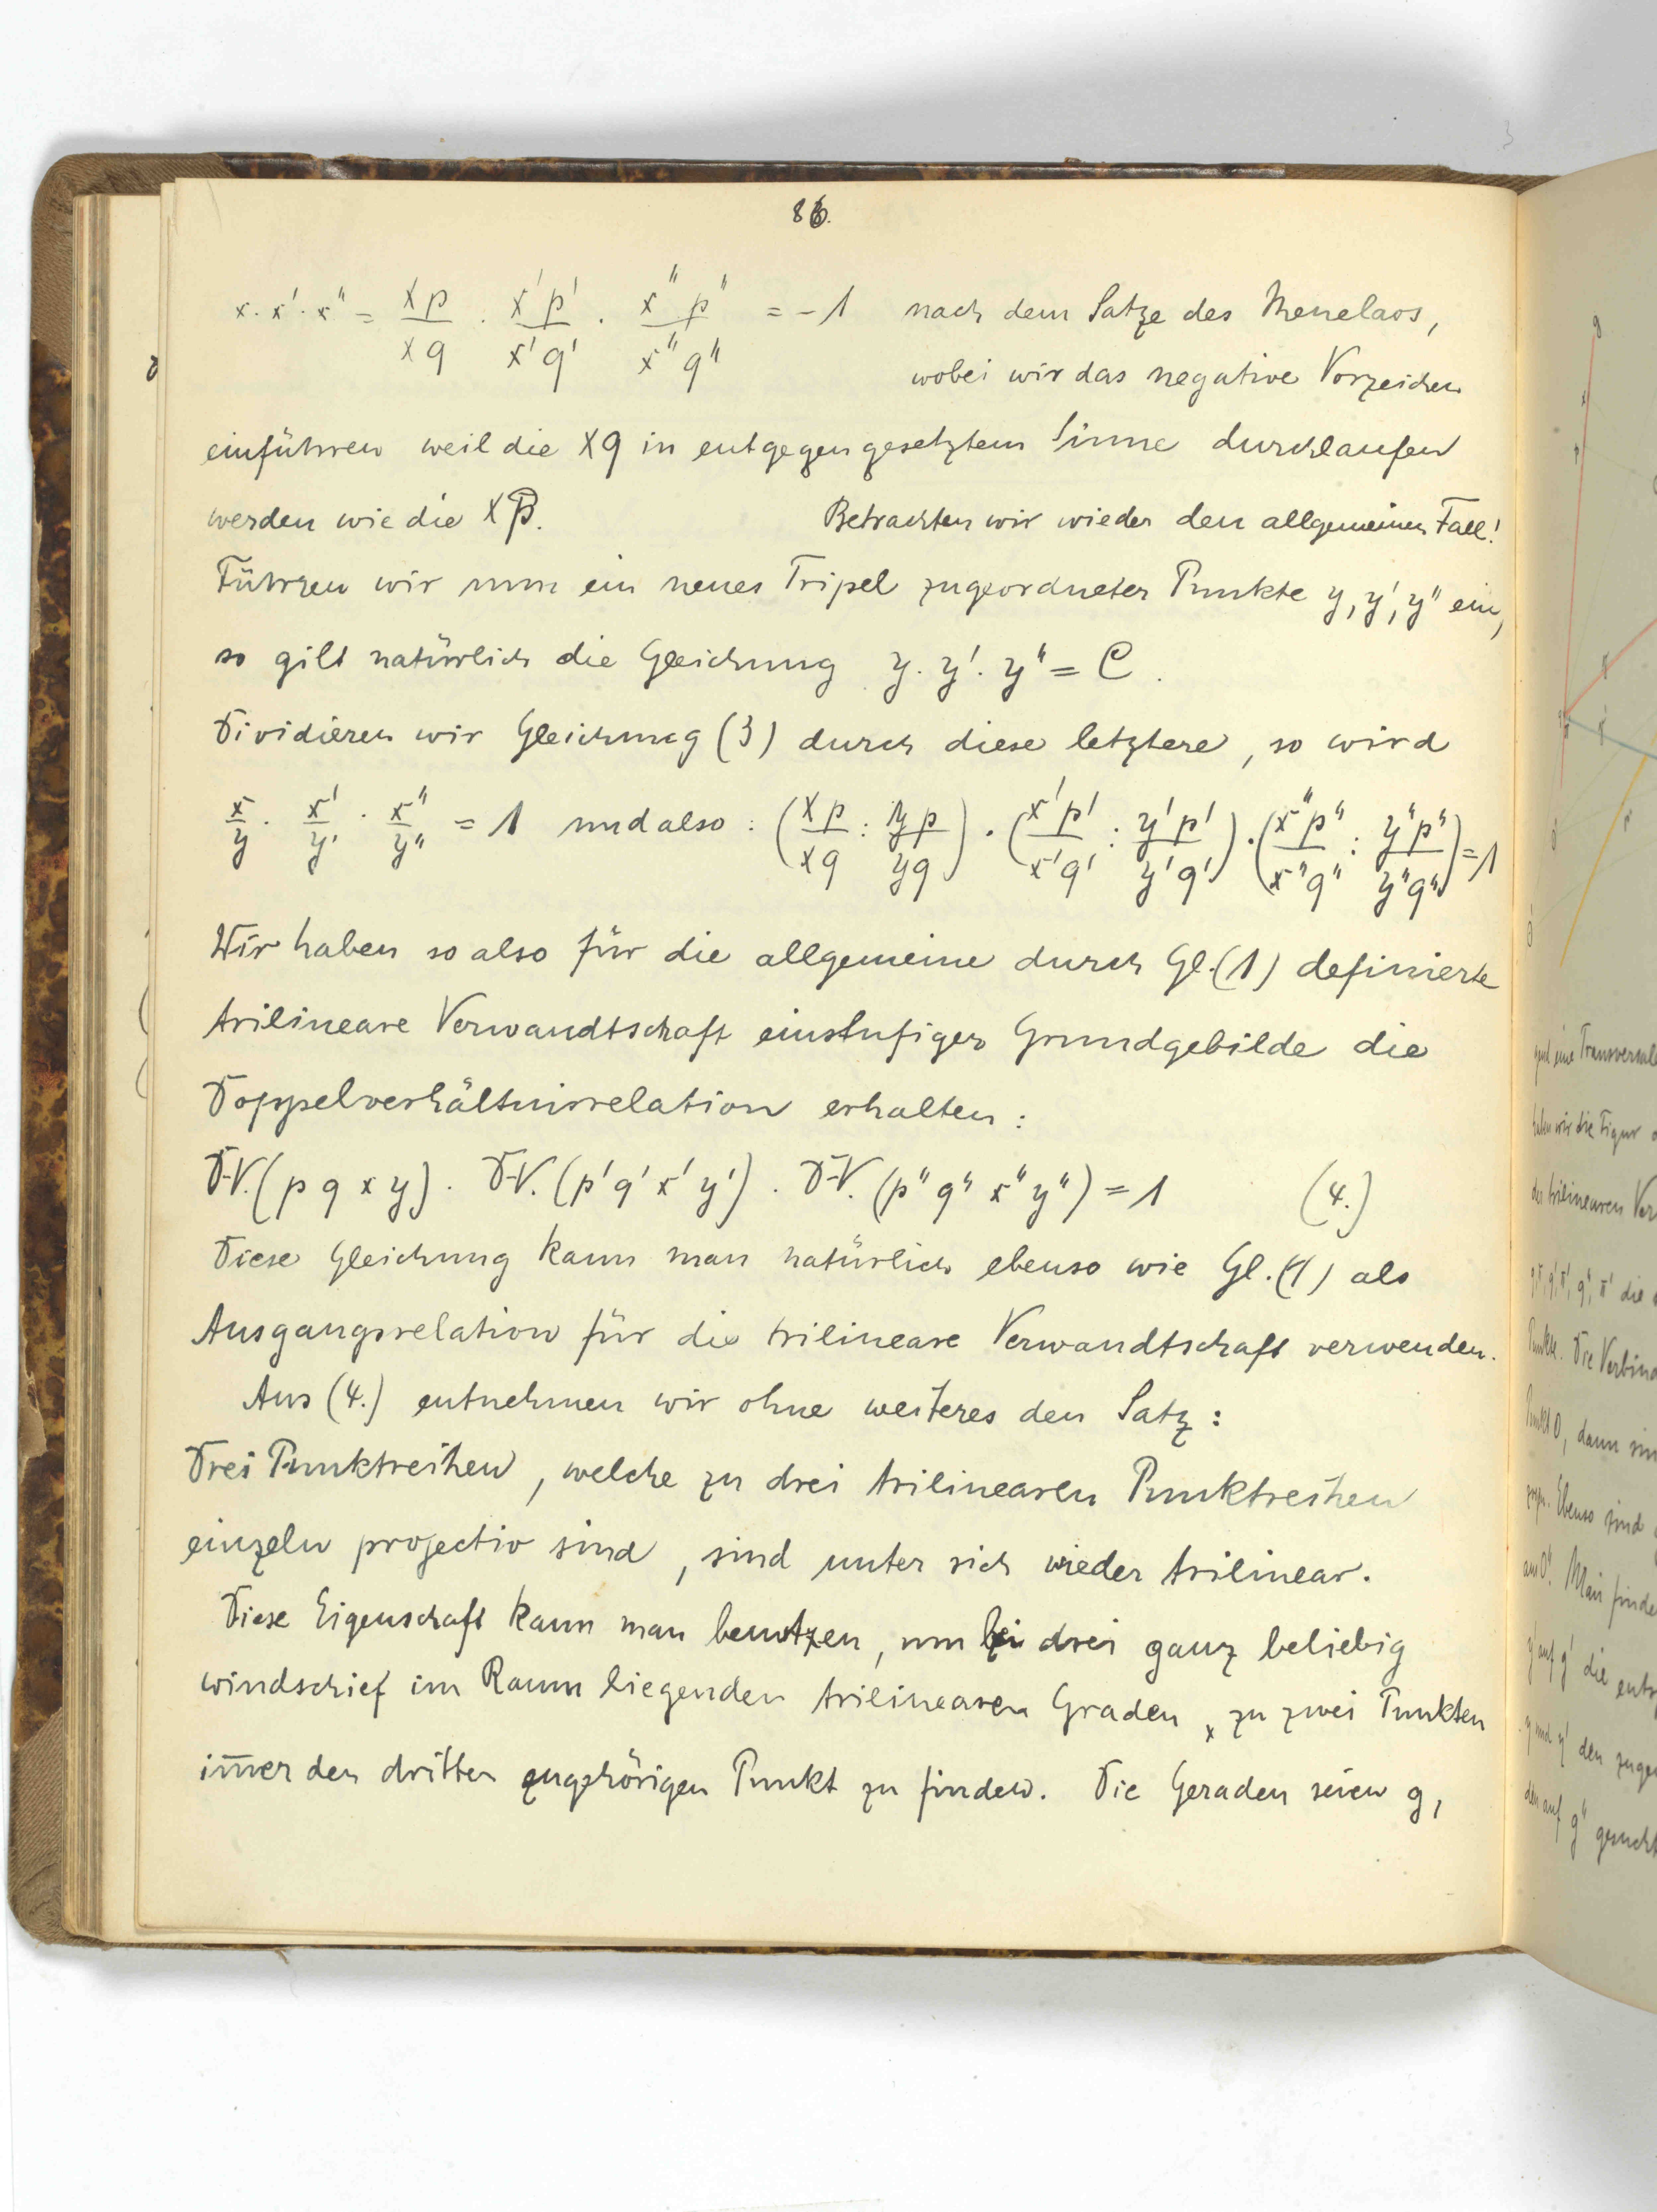 86.
x · x' · x'' = xp/xq · x'p'/x'q' · x''p''/x''q'' = -1 nach dem Satze des Menelaos,
wobei wir das negative Vorzeichen
einführen weil die xq in entgegengesetztem Sinne durchlaufen
werden wie die xp. Betrachten wir wieder den allgemeinen Fall!
Führen wir nun ein neues Tripel zugeordneter Punkte y, y', y'' ein,
so gilt natürlich die Gleichung y · y' · y'' = C.
Dividieren wir Gleichung (3) durch diese letztere, so wird
x/y · x'/y' · x''/y'' = 1 und also : (xp/xq : yp/yq) · (x'p'/x'q' : y'p'/y'q') · (x''p''/x''q'' : y''p''/y''q'') = 1
Wir haben so also für die allgemeine durch Gl. (1) definierte
trilineare Verwandtschaft einstufiger Grundgebilde die
Doppelverhältnisrelation erhalten :
D.V. (p q x y) . D.V. (p' q' x' y') . D.V. (p'' q'' x'' y'') = 1 (4.)
Diese Gleichung kann man natürlich ebenso wie Gl. (1) als
Ausgangsrelation für die trilineare Verwandtschaft verwenden.
Aus (4.) entnehmen wir ohne weiteres den Satz :
Drei Punktreihen, welche zu drei trilinearen Punktreihen
einzeln projectiv sind, sind unter sich wieder trilinear.
Diese Eigenschaft kann man benutzen, um bei drei ganz beliebig
windschief im Raum liegenden trilinearen Graden, zu zwei Punkten
im̅er den dritten zugehörigen Punkt zu finden. Die Geraden seien g,
eine Transversale
haben wir die Figur
der trilinearen Ver
die
Punkte. Die Verbind
Punkt O, dann sin
Ebenso sind
an O''. Man finde
y' auf g' die ents
y und y' den zuge
den auf g'' gesucht